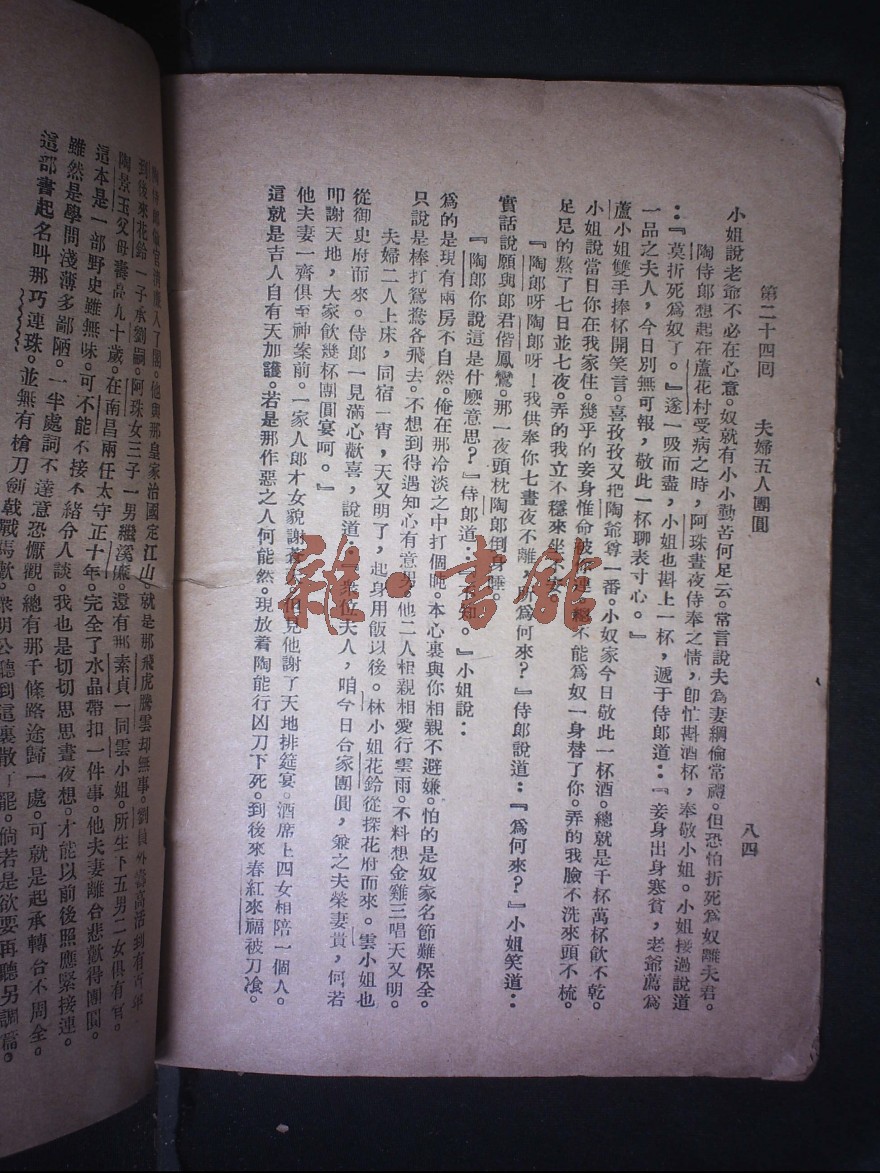 第二十四囘 夫婦五人團圓 八四
小姐說老爺不必在心意。奴就有小小勤苦何足云。常言說夫為妻綱倫常禮。但恐怕折死為奴離夫君。
陶侍郎想起在蘆花村受病之時，阿珠晝夜侍奉之情，卽忙斟酒杯，奉敬小姐。小姐接過說道
：『莫折死為奴了。』遂一吸而盡，小姐也斟上一杯，遞于侍郎道：『妾身出身寒貧，老爺薦為
一品之夫人，今日別無可報，敬此一杯聊表寸心。』
蘆小姐雙手捧杯開笑言。喜孜孜又把陶爺尊一番。小奴家今日敬此一杯酒。總就是千杯萬杯飲不乾。
小姐說當日你在我家住。幾乎的妾身惟命被你連。 不能為奴一身替了你。弄的我臉不洗來頭不梳。
足足的熬了七日並七夜。弄的我立不穩來坐不安。
『陶郎呀陶郎呀！我供奉你七晝夜不離，所為何來？』侍郎說道：『為何來？』小姐笑道：
實話說願與郎君偕鳳鸞。那一夜頭枕陶郎倒身睡。
『陶郎你說這是什麽意思？』侍郎道：『不知。』小姐說：
為的是現有兩房不自然。俺在那冷淡之中打個盹。本心裏與你相親不避嫌。怕的是奴家名節難保全。
只說是棒打鴛鴦各飛去。不想到得遇知心有意男。他二人相親相愛行雲雨。不料想金雞三唱天又明。
夫婦二人上床，同宿一宵，天又明了，起身用飯以後。林小姐花鈴從探花府而來。雲小姐也
從御史府而來。侍郎一見滿心歡喜，說道：『衆位夫人，咱今日合家團圓，兼之夫榮妻貴，何若
叩謝天地，大家飲幾杯團圓宴呵。』
他夫妻一齊俱至神案前。一家人郎才女貌謝蒼天。 見他謝了天地排筵宴。酒席上四女相陪一個人。
這就是吉人自有天加護。若是那作惡之人何能然。現放着陶能行凶刀下死。到後來春紅來福被刀飡。
官清慶入了閣。他與那皇家治國定江山。就是那飛虎騰雲却無事。劉員外壽高活到有百年。
到後來花鈴一子承劉嗣。阿珠女三子一男繼溪廉。還有那素貞一同雲小姐。所生下五男二女俱有官。
陶景玉父母壽高九十歲。在南昌兩任太守正十年。完全了水晶帶扣一件事。他夫妻離合悲歡得團圓。
這本是一部野史雖無味。可不能不接不緒令人談。我也是切切思思晝夜想。才能以前後照應緊接連。
雖然是學問淺薄多鄙陋。一半處詞不達意恐懨觀。總有那千條路途歸一處。可就是起承轉合不周全。
這部書起名叫那巧連珠。並無有槍刀劍戟戰馬歡。衆明公聽到這裏散了罷。倘若是欲要再聽另調篇。
雜·書館